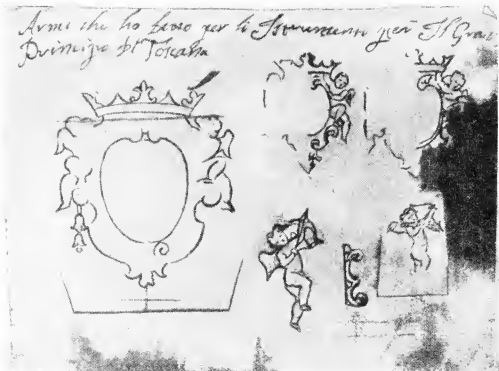 Arme che ho fatto per li Istrumenti per Il Gran
Principe di Toscana